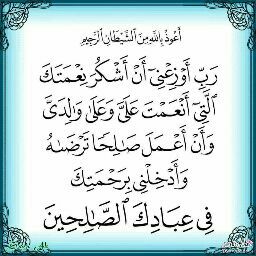 أَعُوذُ بِاللَّهِ مِنَ ٱلشَّيْطَانِ ٱلرَّجِيمِ
رَبِّ أَوْزِعْنِىٓ أَنْ أَشْكُرَ نِعْمَتَكَ
ٱلَّتِىٓ أَنْعَمْتَ عَلَىَّ وَعَلَىٰ وَٰلِدَىَّ
وَأَنْ أَعْمَلَ صَٰلِحًا تَرْضَىٰهُ
وَأَدْخِلْنِى بِرَحْمَتِكَ
فِى عِبَادِكَ ٱلصَّٰلِحِينَ